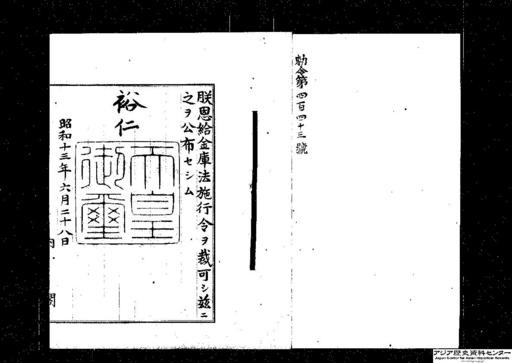 勅令第四百四十三號
朕恩給金庫法施行令ヲ裁可シ玆ニ
之ヲ公布セシム
裕仁
天皇御璽
昭和十三年六月二十八日
内閣
アジア歴史資料センター
Japan Center for Asian Historical Records